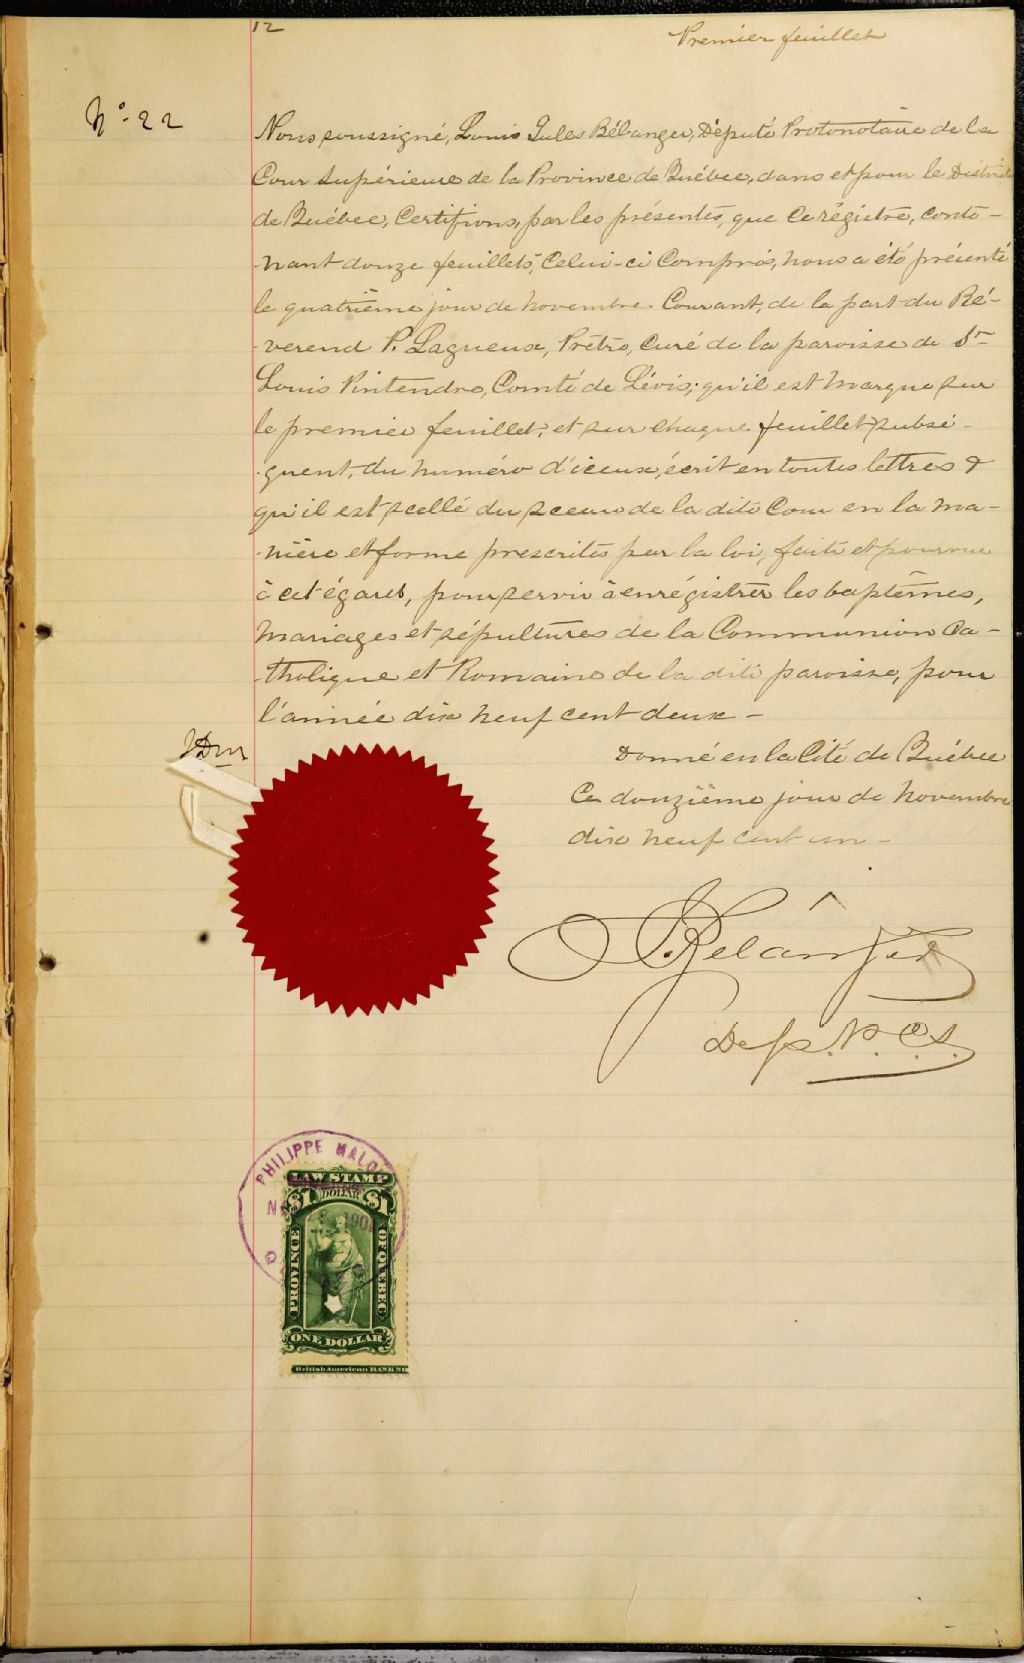 12
Premier feuillet
No. 22
Nous soussigné, Louis Jules Bélanger, Député Protonotaire de la
Cour Supérieure de la Province de Québec, dans et pour le District
de Québec, Certifions, par les présentes, que ce régistre, conte-
-nant douze feuillets, Celui-ci Compris, nous a été présenté
le quatrième jour de novembre Courant, de la part du Ré-
-verend P. Lagueux, Prêtre, Curé de la paroisse de St
Louis Pintendre, Comté de Lévis; qu'il est marque sur
le premier feuillet, et sur chaque feuillet subsé-
-quent, du numéro d'iceux, écrit en toutes lettres &
qu'il est scellé du sceau de la dite Cour en la ma-
-nière et forme prescrites par la loi, faite et pourvue
à cet égard, pour servir à enrégistrer les baptêmes,
Mariages et sépultures de la Communion Ca-
-tholique et Romaine de la dite paroisse, pour
l'année dix neuf cent deux -
Donné en la Cité de Québec
Ce douzième jour de Novembre
dix neuf cent un -
Bélanger
Dep. P. C. S.
PHILIPPE MALO
1901
LAW STAMP
$1 DOLLAR $1
PROVINCE OF QUEBEC
ONE DOLLAR
British American BANK NO